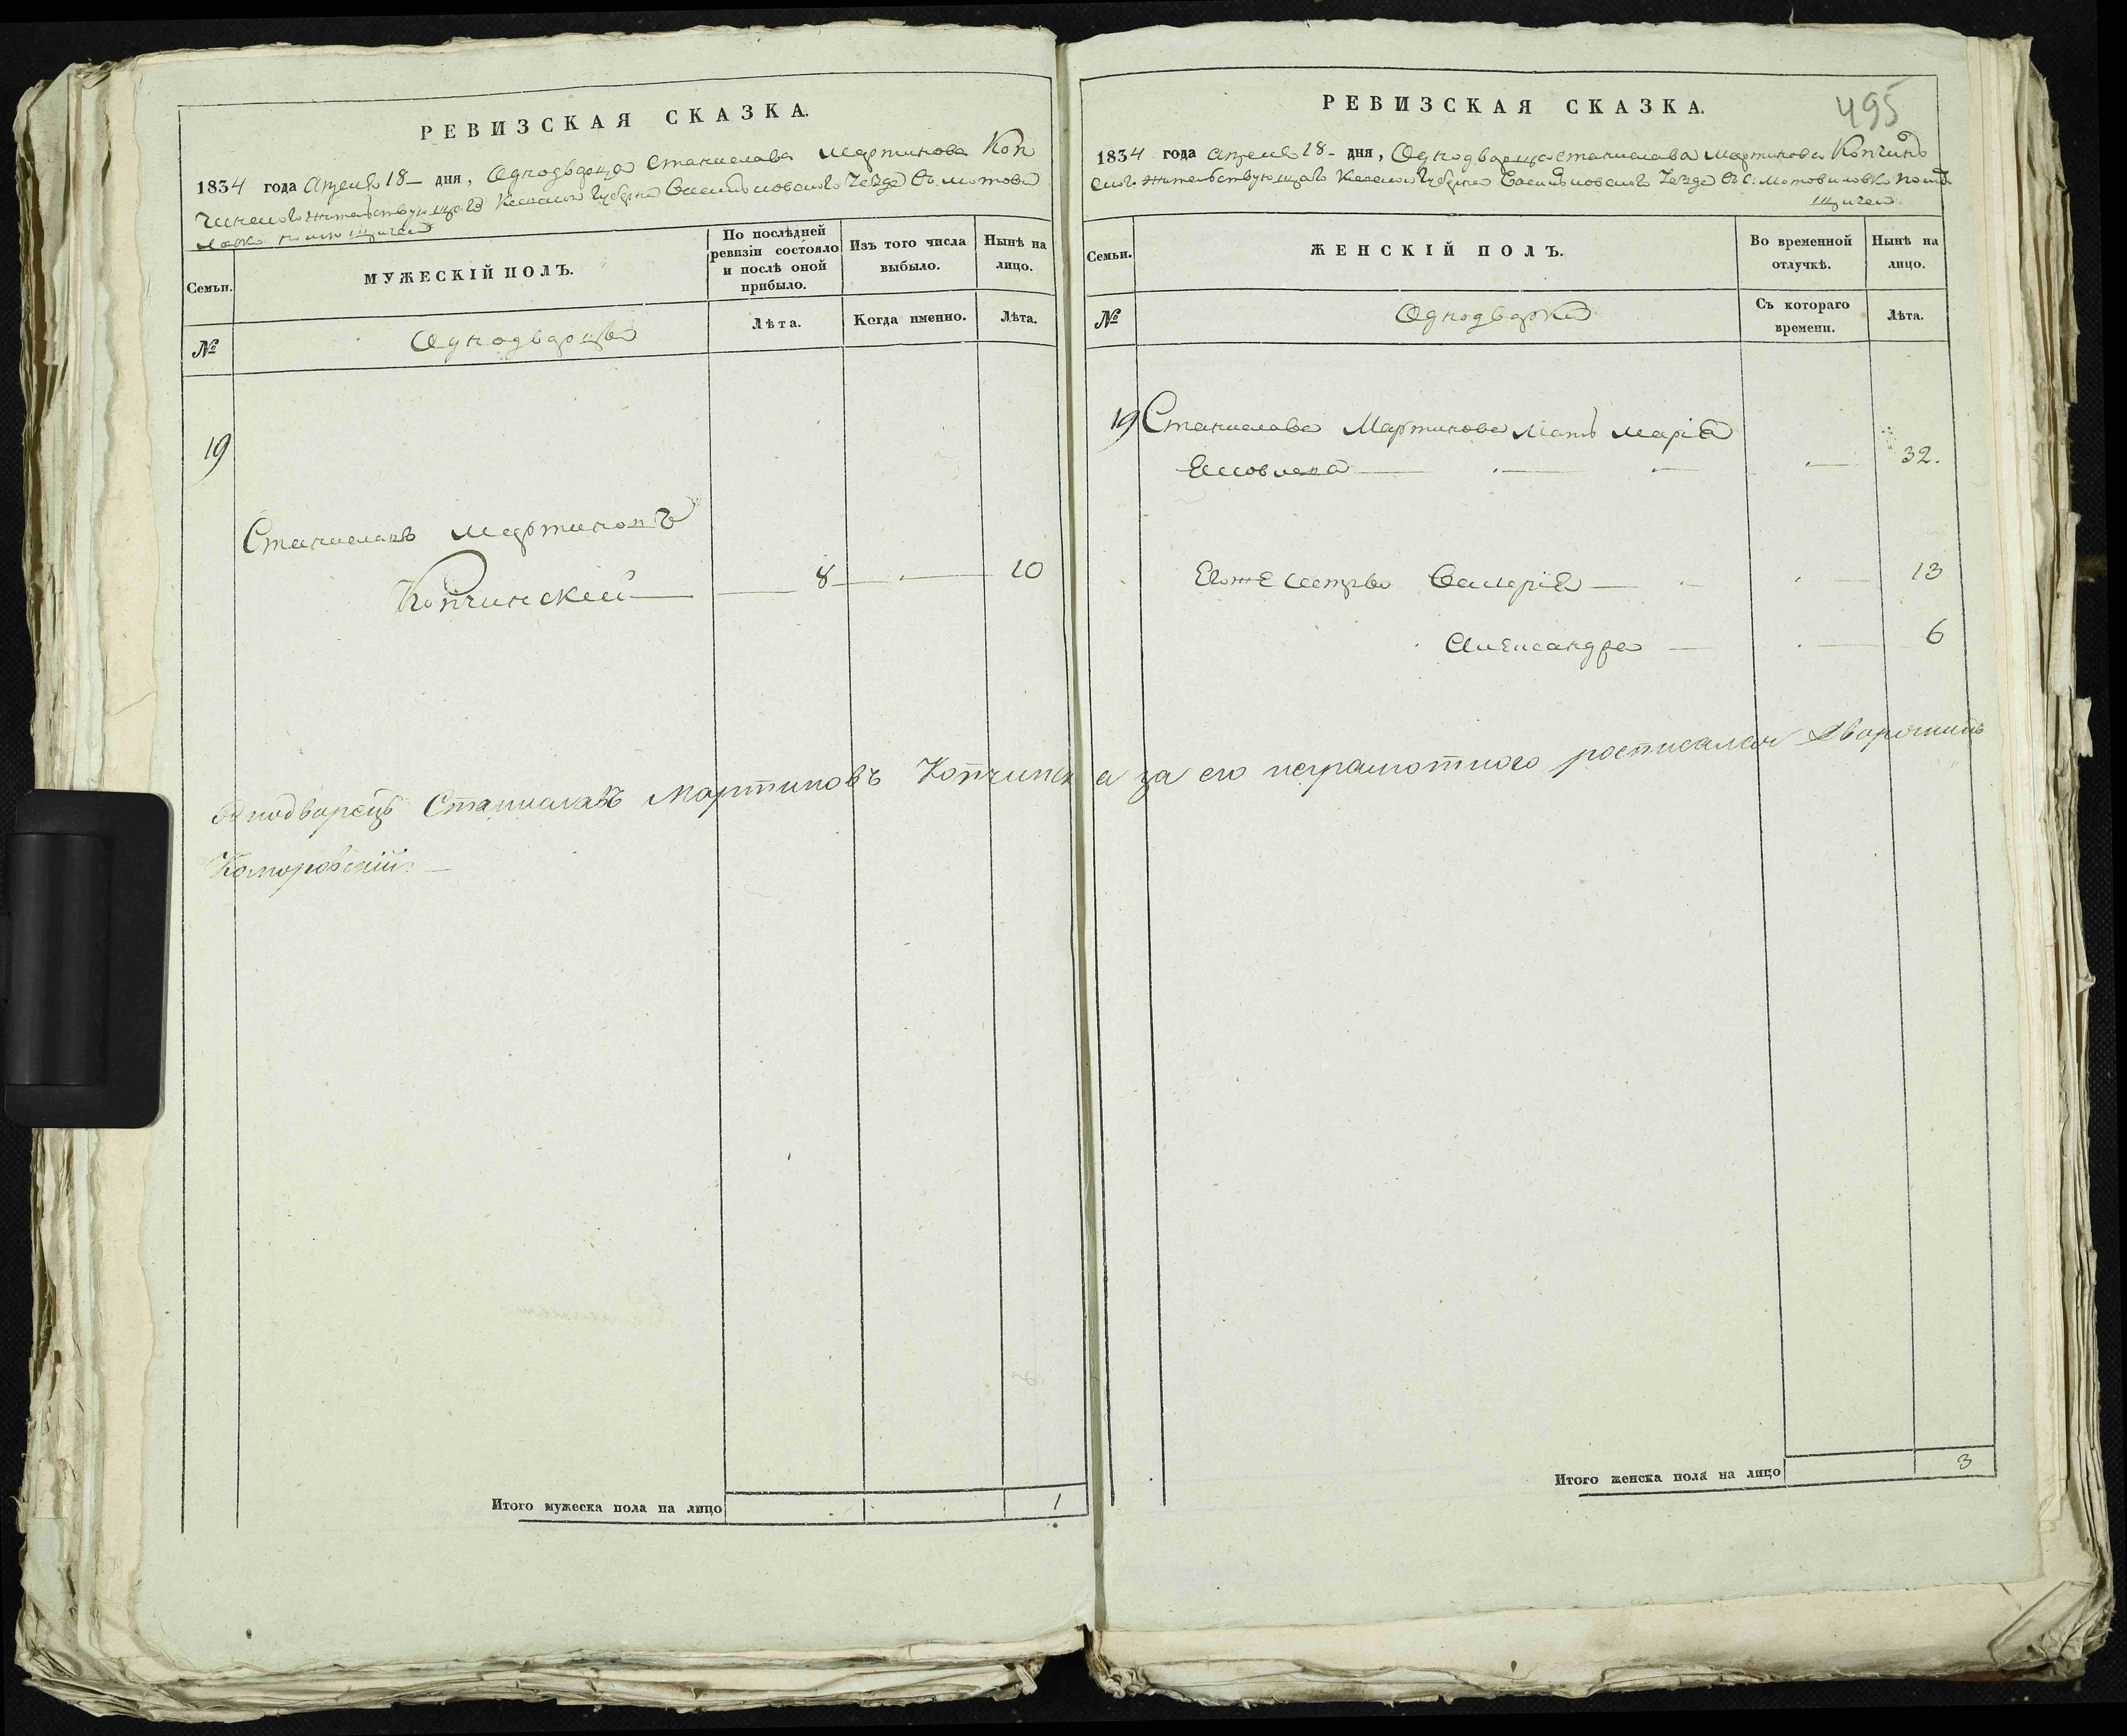 РЕВИЗСКАЯ СКАЗКА.
1834 года Апреля 18 – дня, Однодворца Станислава Мартинова Коп
чинского жительствующаго Киевской Губернии Васильковского Уезда въ Мотови
ловке помещичей
Семьи.
МУЖЕСКІЙ ПОЛЪ.
По послѣдней ревизіи состояло и послѣ оной прибыло.
Изъ того числа выбыло.
Нынѣ на лицо.
№
Однодворцы
Лѣта.
Когда именно.
Лѣта.
19
Станиславъ Мартиновъ
Копчинский 8 10
Однодворецъ Станиславъ Мартиновъ Копчинск а за его неграмотного росписался Дворянинъ
Коморовскій
Итого мужеска пола на лицо 1
495
РЕВИЗСКАЯ СКАЗКА.
1834 года Апреля 18 - дня, Однодворца Станислава Мартинова Копчин
ского жительствующаго Киевской Губернии Васильковского Уезда въ с: Мотовиловке поме
щичей
Семьи.
ЖЕНСКІЙ ПОЛЪ.
Во временной отлучкѣ.
Нынѣ на лицо.
№
Однодворки
Съ котораго времени.
Лѣта.
19 Станислава Мартинова Мать Марія
32.
Его же сестры Валерія 13
Александра 6
Итого женска пола на лицо 3